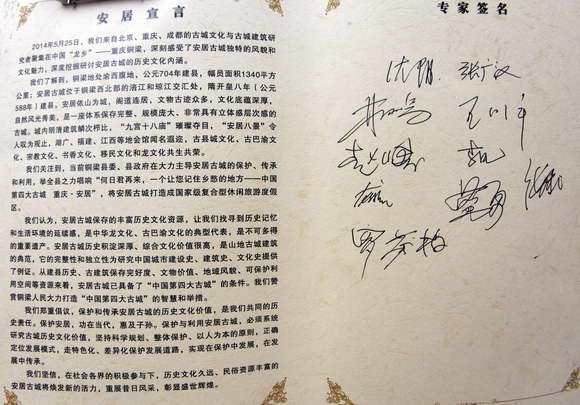 安居宣言
2014年5月25日，我们来自北京、重庆、成都的古城文化与古城建筑研
究者聚集在中国“龙乡”——重庆铜梁，深刻感受了安居古城独特的风貌和
文化魅力，深度挖掘研讨安居古城的历史文化内涵。
我们了解到，铜梁地处渝西腹地，公元704年建县，幅员面积1340平方
公里；安居古城位于铜梁西北部的涪江和琼江交汇处，隋开皇八年（公元
588年）建县。安居依山为城，阁道连居，文物古迹众多，文化底蕴深厚，
自然风光秀美，是一座体系保存完整、规模庞大、非常具有立体感层次感的
古城。城内明清建筑鳞次栉比，“九宫十八庙”璀璨夺目，“安居八景”令
人叹为观止，湖广、福建、江西等地会馆闻名遐迩，古县城文化、古巴渝文
化、宗教文化、书香文化、移民文化和龙文化共生共荣。
我们关注到，当前铜梁县委、县政府在大力主导安居古城的保护、传承
和利用，举全县之力唱响“何日君再来，一个让您记住乡愁的地方——中国
第四大古城 重庆·安居”，将安居古城打造成国家级复合型休闲旅游度假
区。
我们认为，安居古城保存的丰富历史文化资源，让我们找寻到历史记忆
和生活环境的延续感，是中华龙文化、古巴渝文化的典型代表，是不可多得
的重要遗产。安居古城历史积淀深厚、综合文化价值很高，是山地古城建筑
的典范，它的完整性和独立性为研究中国城市建设史、建筑史、文化史提供
了例证。从建县历史、古建筑保存完好度、文物价值、地域风貌、可保护利
用空间等资源来看，安居古城已具备了“中国第四大古城”的条件。我们赞
赏铜梁人民大力打造“中国第四大古城”的智慧和举措。
我们郑重倡议，保护和传承安居古城的历史文化价值，是我们共同的历
史责任。保护安居，功在当代，惠及子孙。保护与利用安居古城，必须系统
研究古城历史文化价值，坚持科学规划、整体保护、以人为本的原则，正确
定位发展模式，走特色化、差异化保护发展道路，实现在保护中发展，在发
展中传承。
我们坚信，在社会各界的积极参与下，历史文化久远、民俗资源丰富的
安居古城将焕发新的活力，重展昔日风采，彰显盛世辉煌。
专家签名
张广汉
王川平
罗茂梅